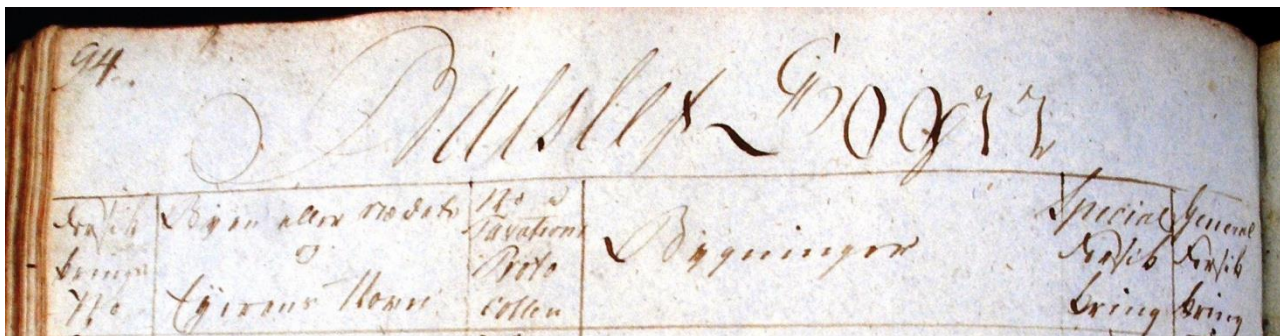 94.
Balslef Sogn
Forsik
krings
No
Byen eller Stedets
og
Eyerens Navn
No i
Taxations
Proto
collen
Bygninger
Special
Forsik
kring
General
Forsik
kring